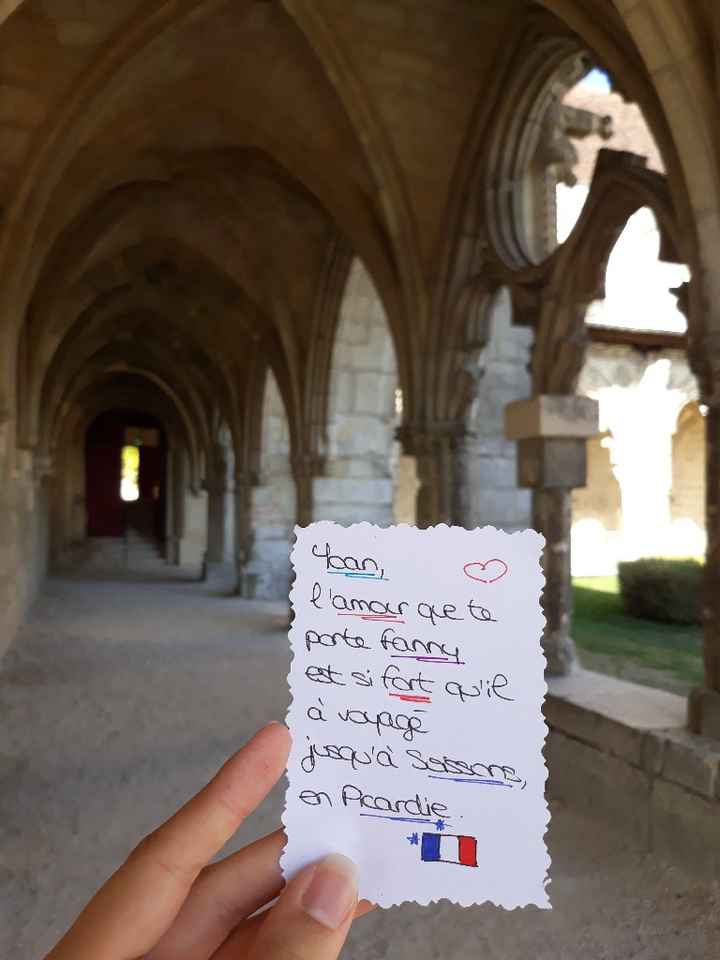 Yoan,
l'amour que te
porte fanny
est si fort qu'il
à voyagé
jusqu'à Soissons,
en Picardie.